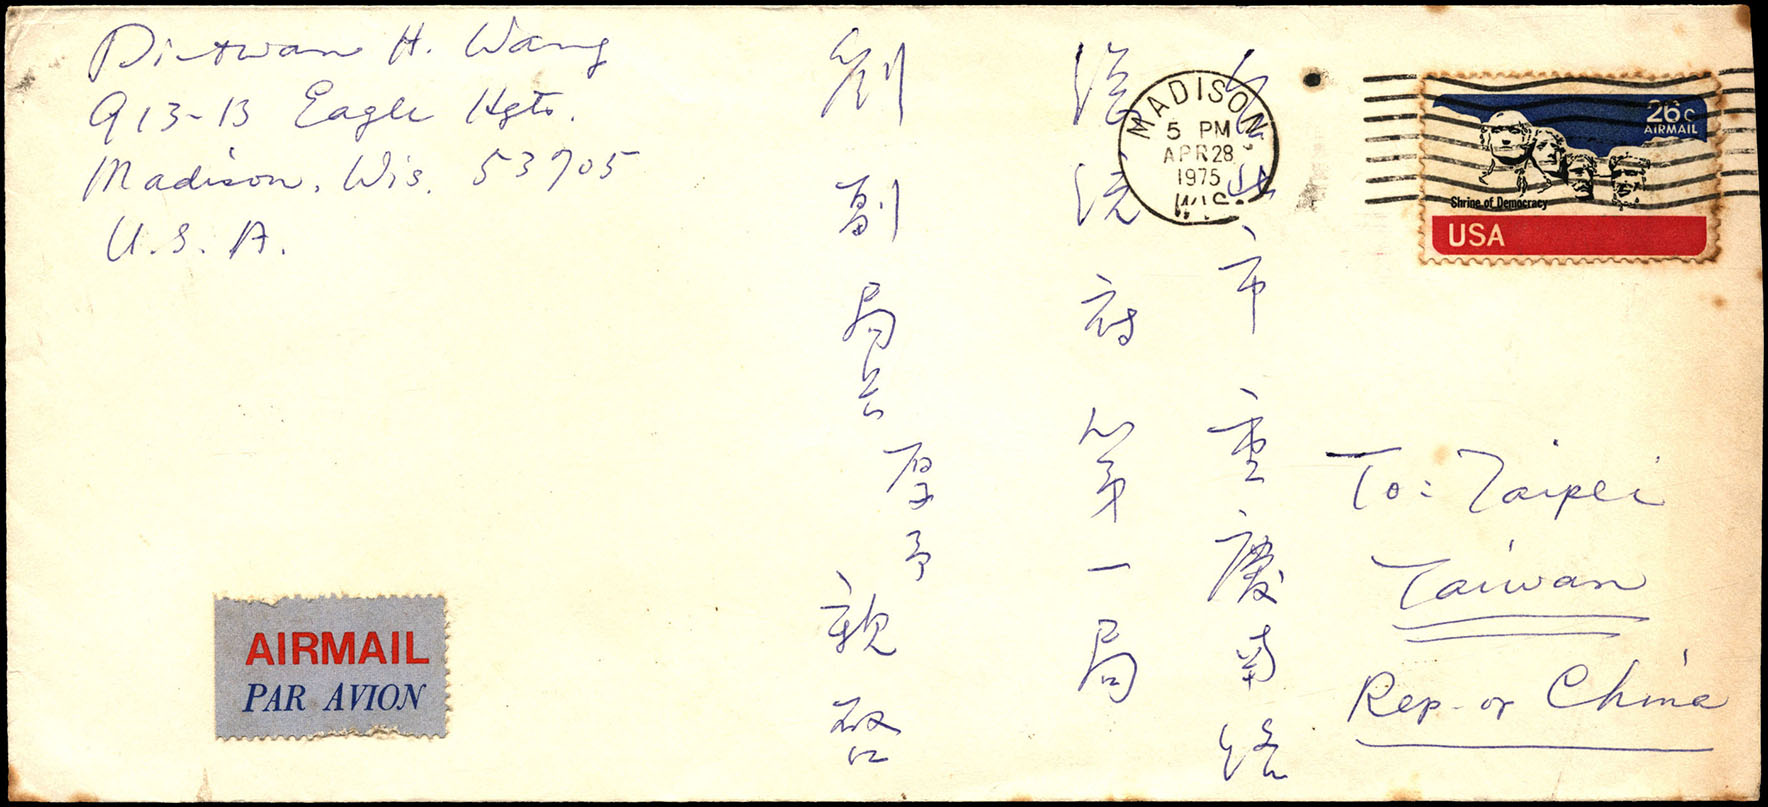 Dietwan H. Wang
913-B Eagle Hgts.
Madison, Wis. 53705
U.S.A.
MADISON,
5 PM
APR 28
1975
WIS.
26c
AIRMAIL
Shrine of Democracy
USA
To: Taipei
Taiwan
Rep. of China
台北市重慶南路
總統府第一局
劉副局長厚予親啓
AIRMAIL
PAR AVION